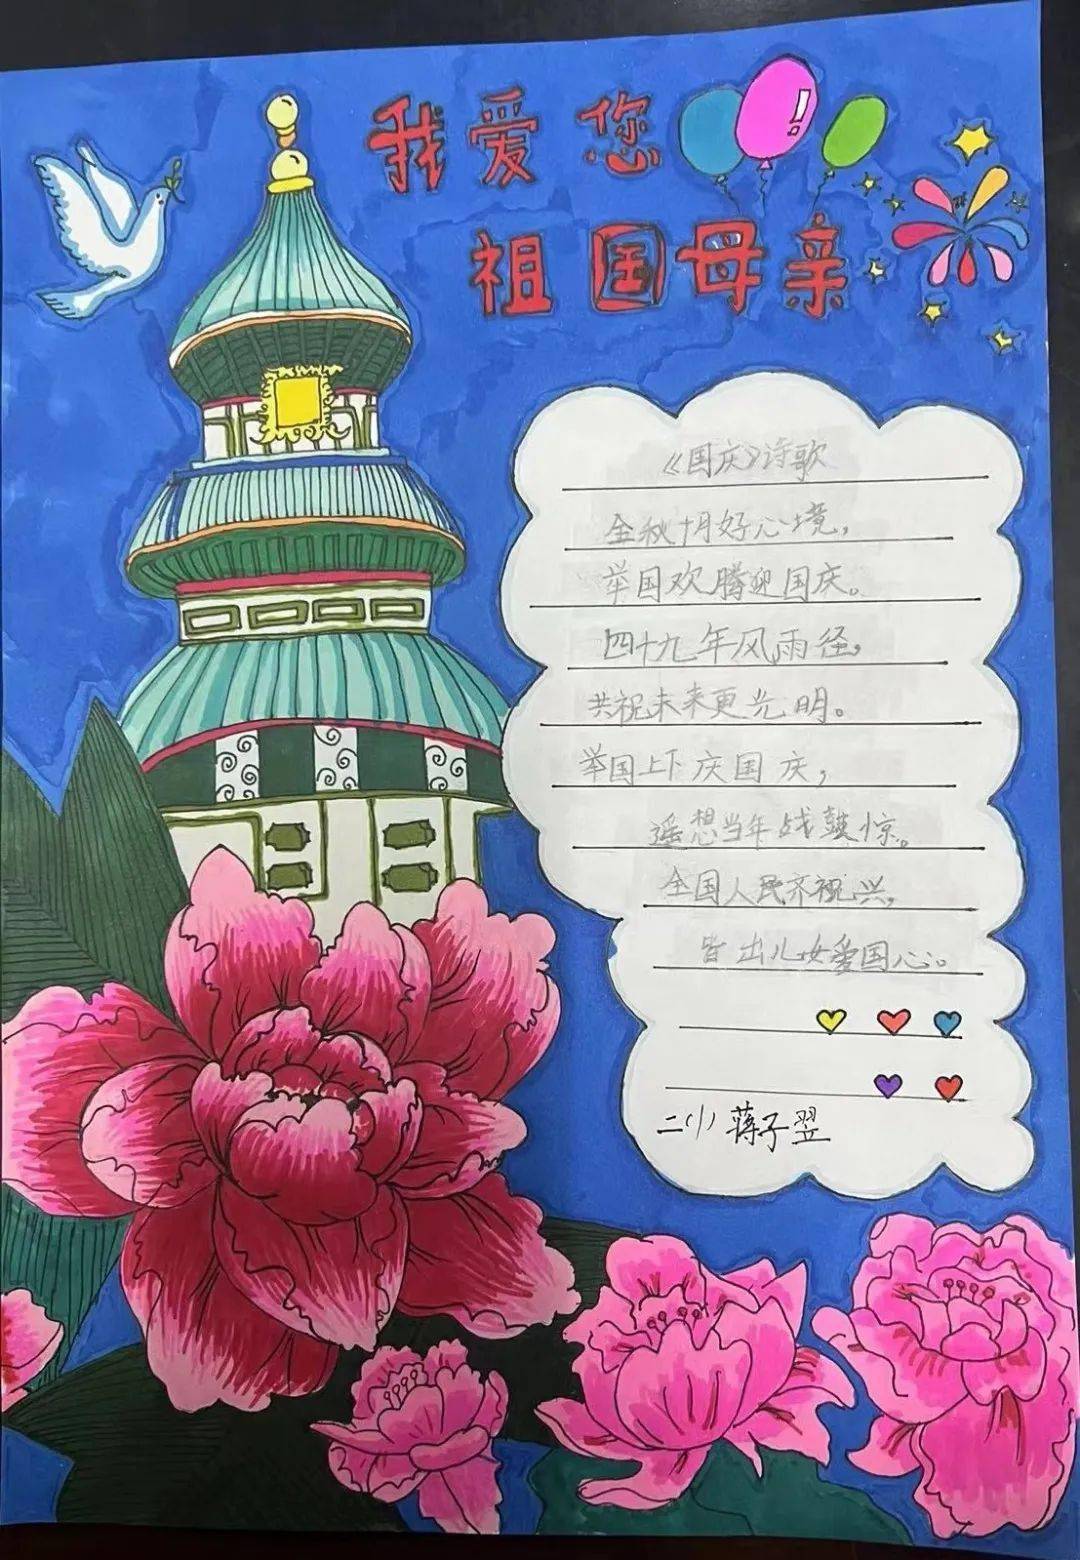 我爱您!
祖国母亲
《国庆》诗歌
金秋十月好心境,
举国欢腾迎国庆。
四十九年风雨径,
共祝未来更光明。
举国上下庆国庆,
遥想当年战鼓惊。
全国人民齐祝兴,
皆出儿女爱国心。
二(1)蒋子翌